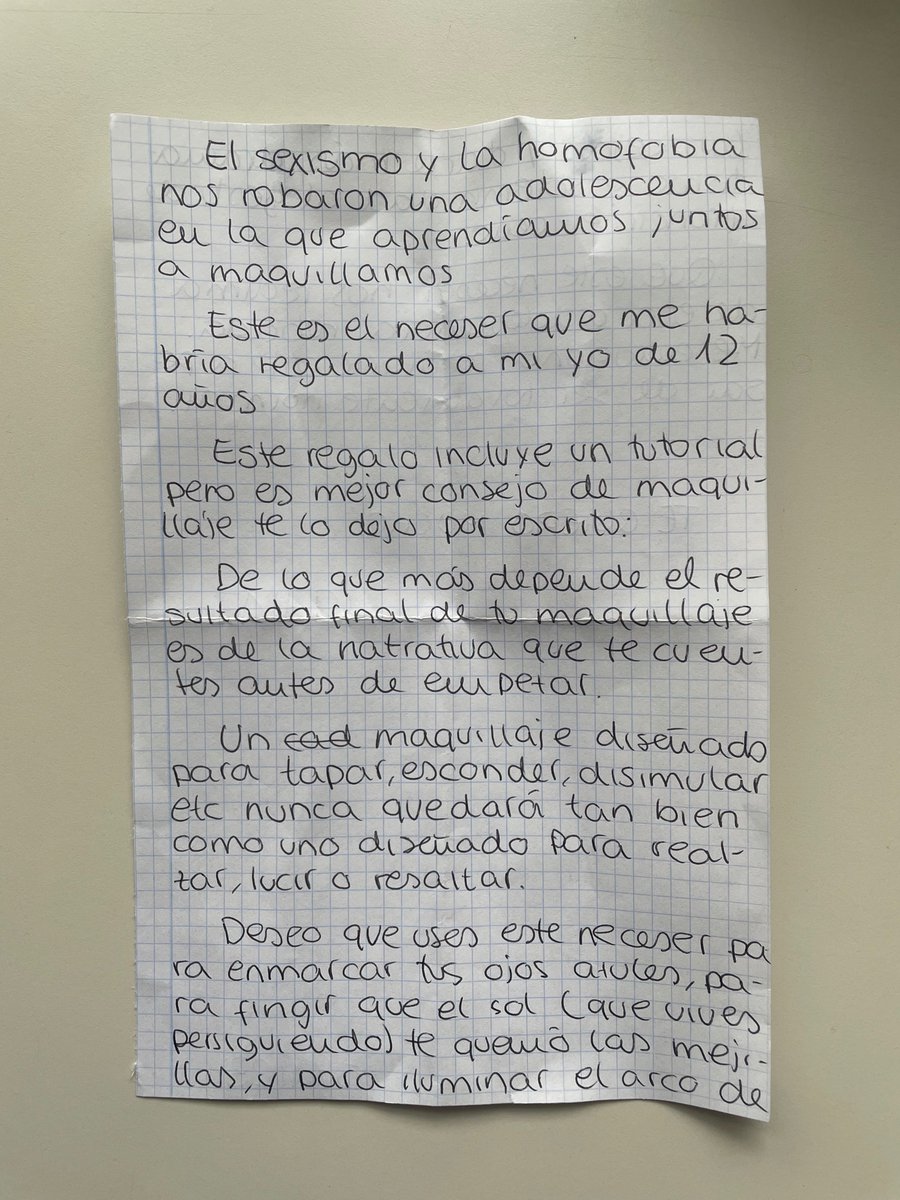 El sexismo y la homofobia
nos robaron una adolescencia
en la que aprendíamos juntos
a maquillarnos
Este es el neceser que me ha-
bría regalado a mi yo de 12
años
Este regalo incluye un tutorial
pero es mejor consejo de maqui-
llaje te lo dejo por escrito:
De lo que más depende el re-
sultado final de tu maquillaje
es de la narrativa que te cuen-
tes antes de empezar.
Un cad maquillaje diseñado
para tapar, esconder, disimular
etc nunca quedará tan bien
como uno diseñado para real-
zar, lucir o resaltar.
Deseo que uses este neceser pa
ra enmarcar tus ojos azules, pa-
ra fingir que el sol (que vives
persiguiendo) te quemó las meji-
llas, y para iluminar el arco de